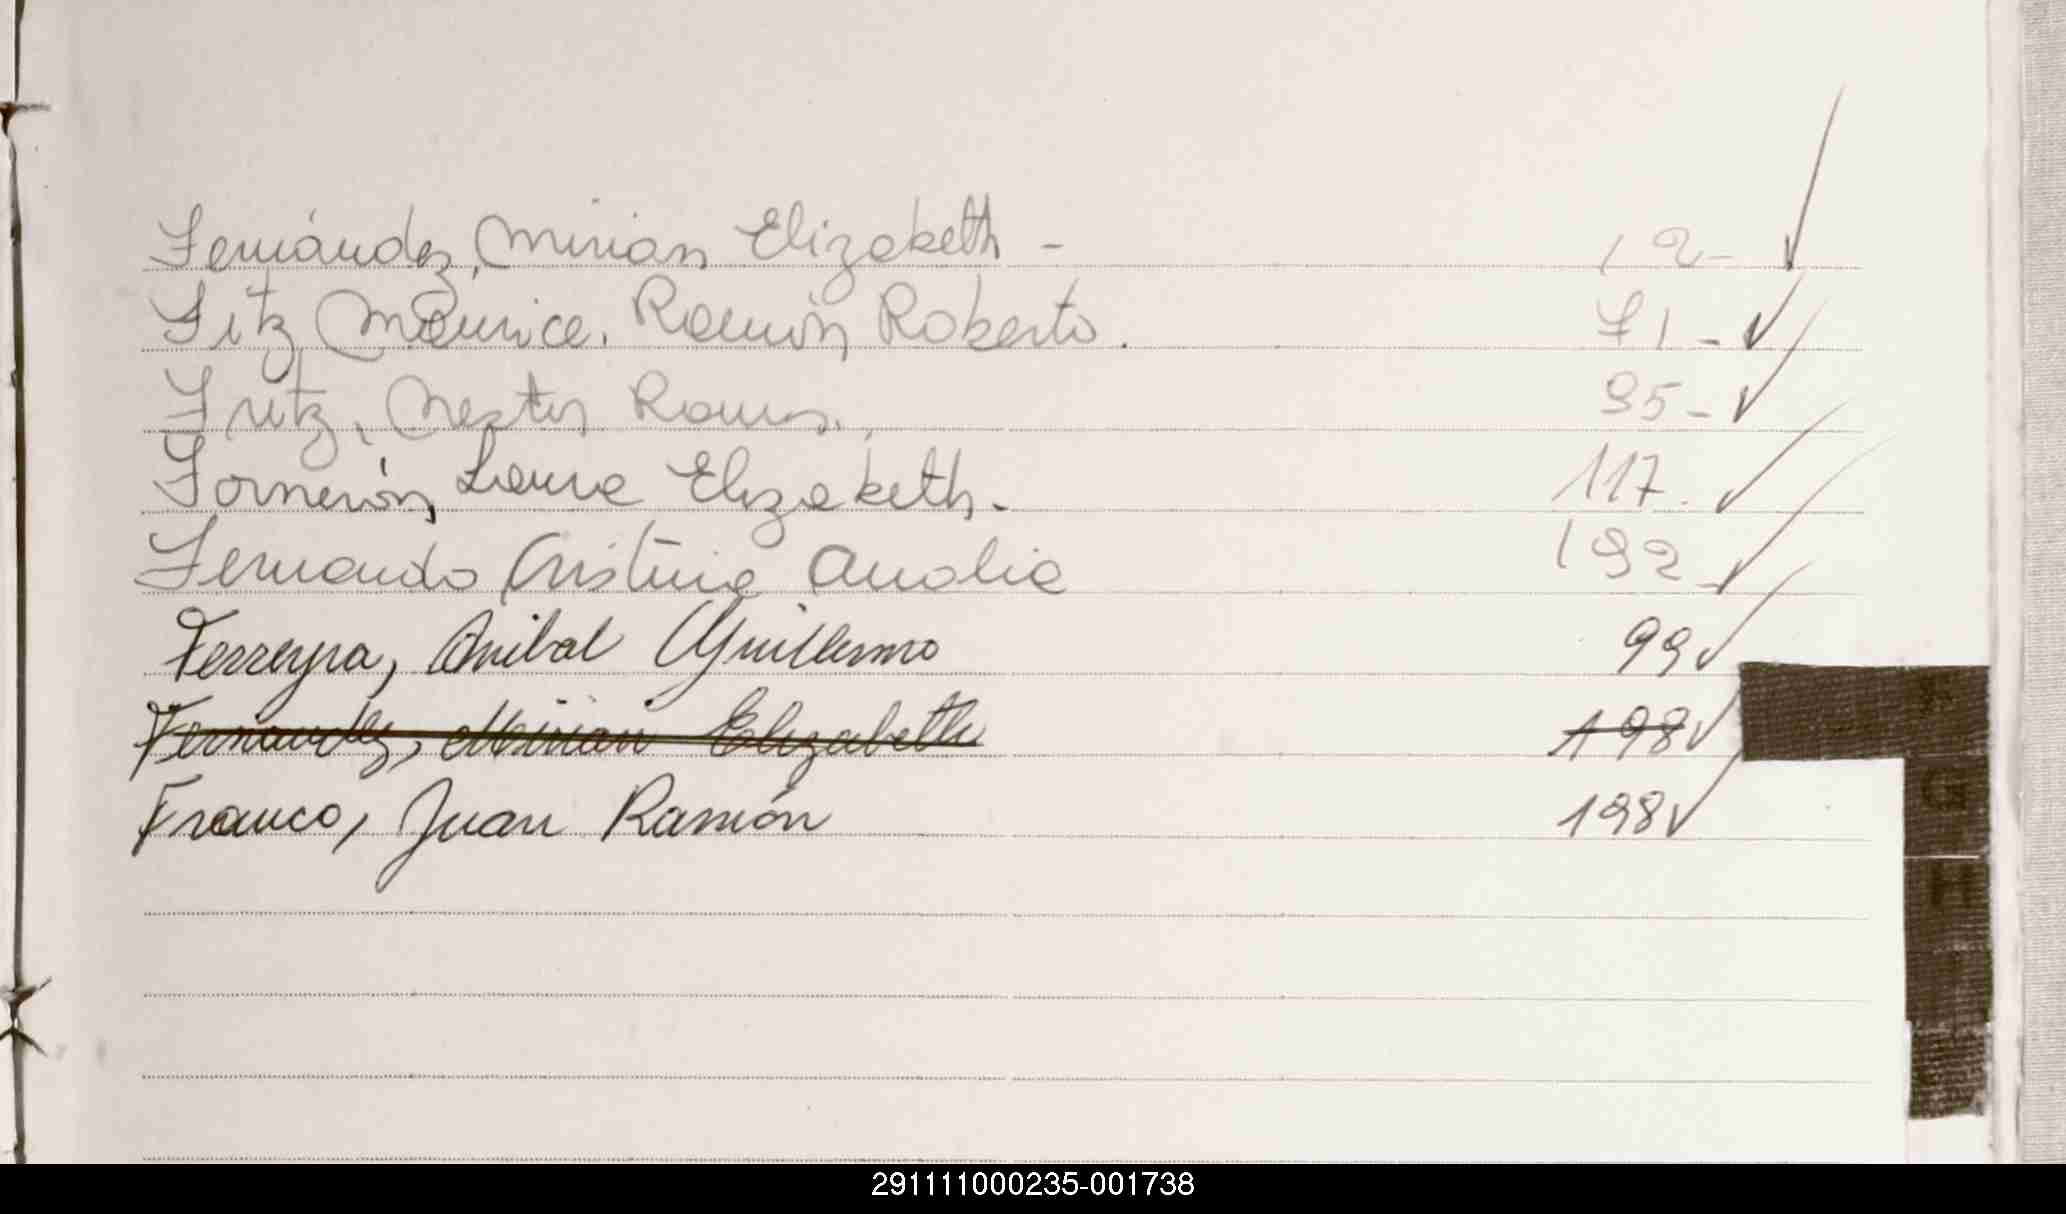 Fernández, Mirian Elizabeth - 12-
Fitz Maurice, Ramón Roberto. 71-
Fritz, Nestor Ramón. 95-
Fornerón, Laura Elizabeth. 117.
Fernando Cristina Analia 192
Ferreyra, Anibal Guillermo 99
Fernandez, Mirian Elizabeth 198
Franco, Juan Ramón 198
G
H
291111000235-001738